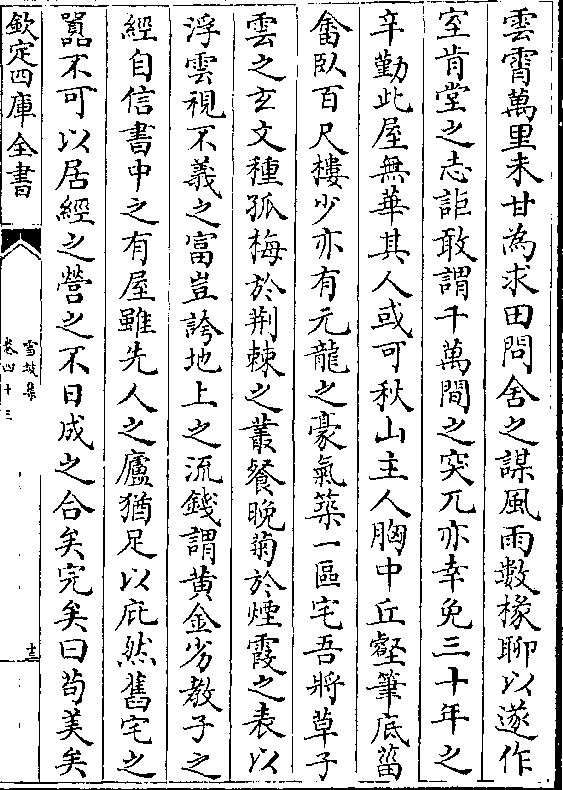 雲霄萬里未甘為求田問舍之謀風雨數椽聊以遂作
室肯堂之志詎敢謂千萬間之突兀亦幸免三十年之
辛勤此屋無華其人或可秋山主人胸中丘壑筆底菑
畬臥百尺樓少亦有元龍之豪氣築一區宅吾將草子
雲之玄文種孤梅於荆棘之叢餐晚菊於煙霞之表以
浮雲視不義之富豈誇地上之流錢謂黄金劣教子之
經自信書中之有屋雖先人之廬猶足以庇然舊宅之
囂不可以居經之營之不日成之合矣完矣曰茍美矣
欽定四庫全書
雪坡集
卷四十三
十三